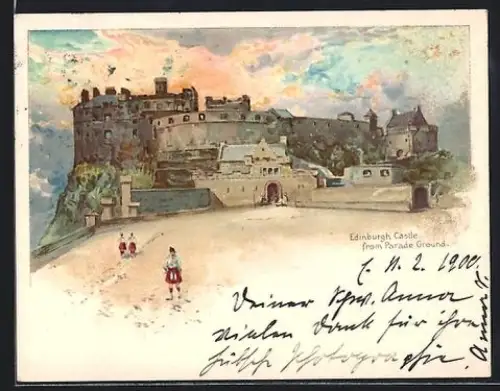 Edinburgh Castle
from Parade Ground.
E. 11. 2. 1900.
Deiner Schw. Anna
vielen Dank für ihre
hübsche Photographie.